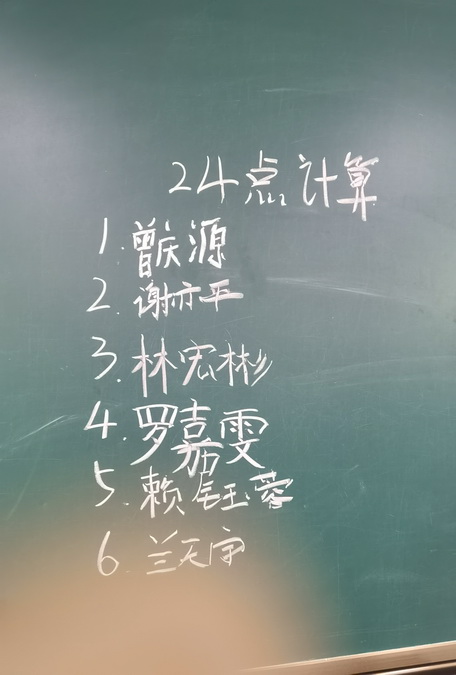 24点计算
1.曾庆源
2.谢亦平
3.林宏彬
4.罗嘉雯
5.赖钰蓉
6.兰天宇